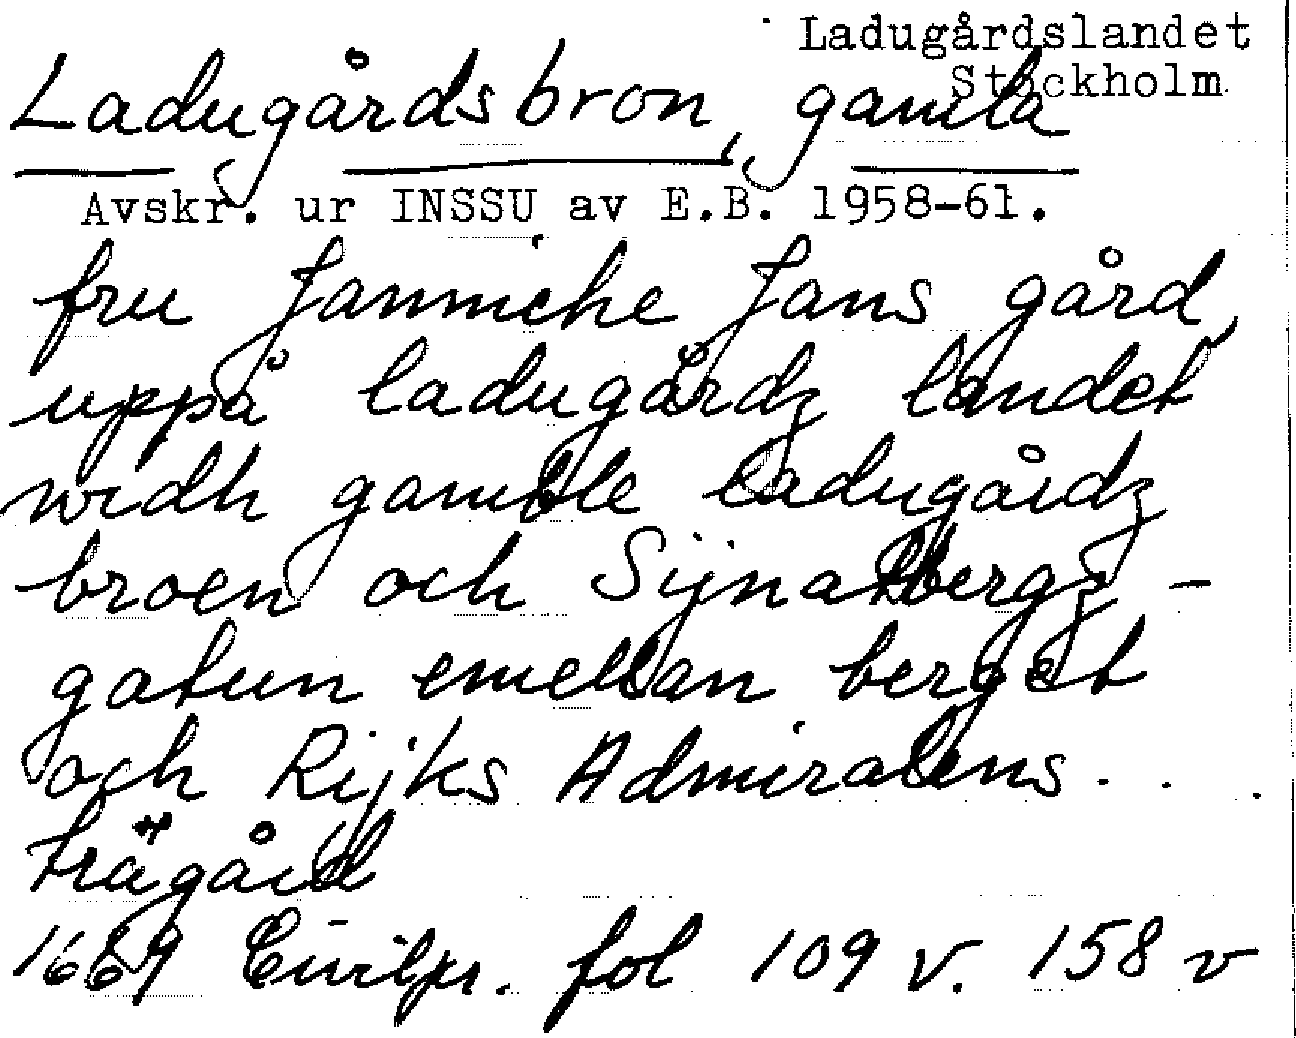 Ladugårdslandet
Stockholm
Ladugårdsbron, gamla
Avskr. ur INSSU av E.B. 1958-61.
fru Janniche Jans gård,
uppå ladugårdz landet
widh gamble ladugårdz
broen och Sijnabbergz-
gatun emellan berget
och Rijks Admiralens . . .
trägård
1669 Civilpr. fol 109 v. 158 v